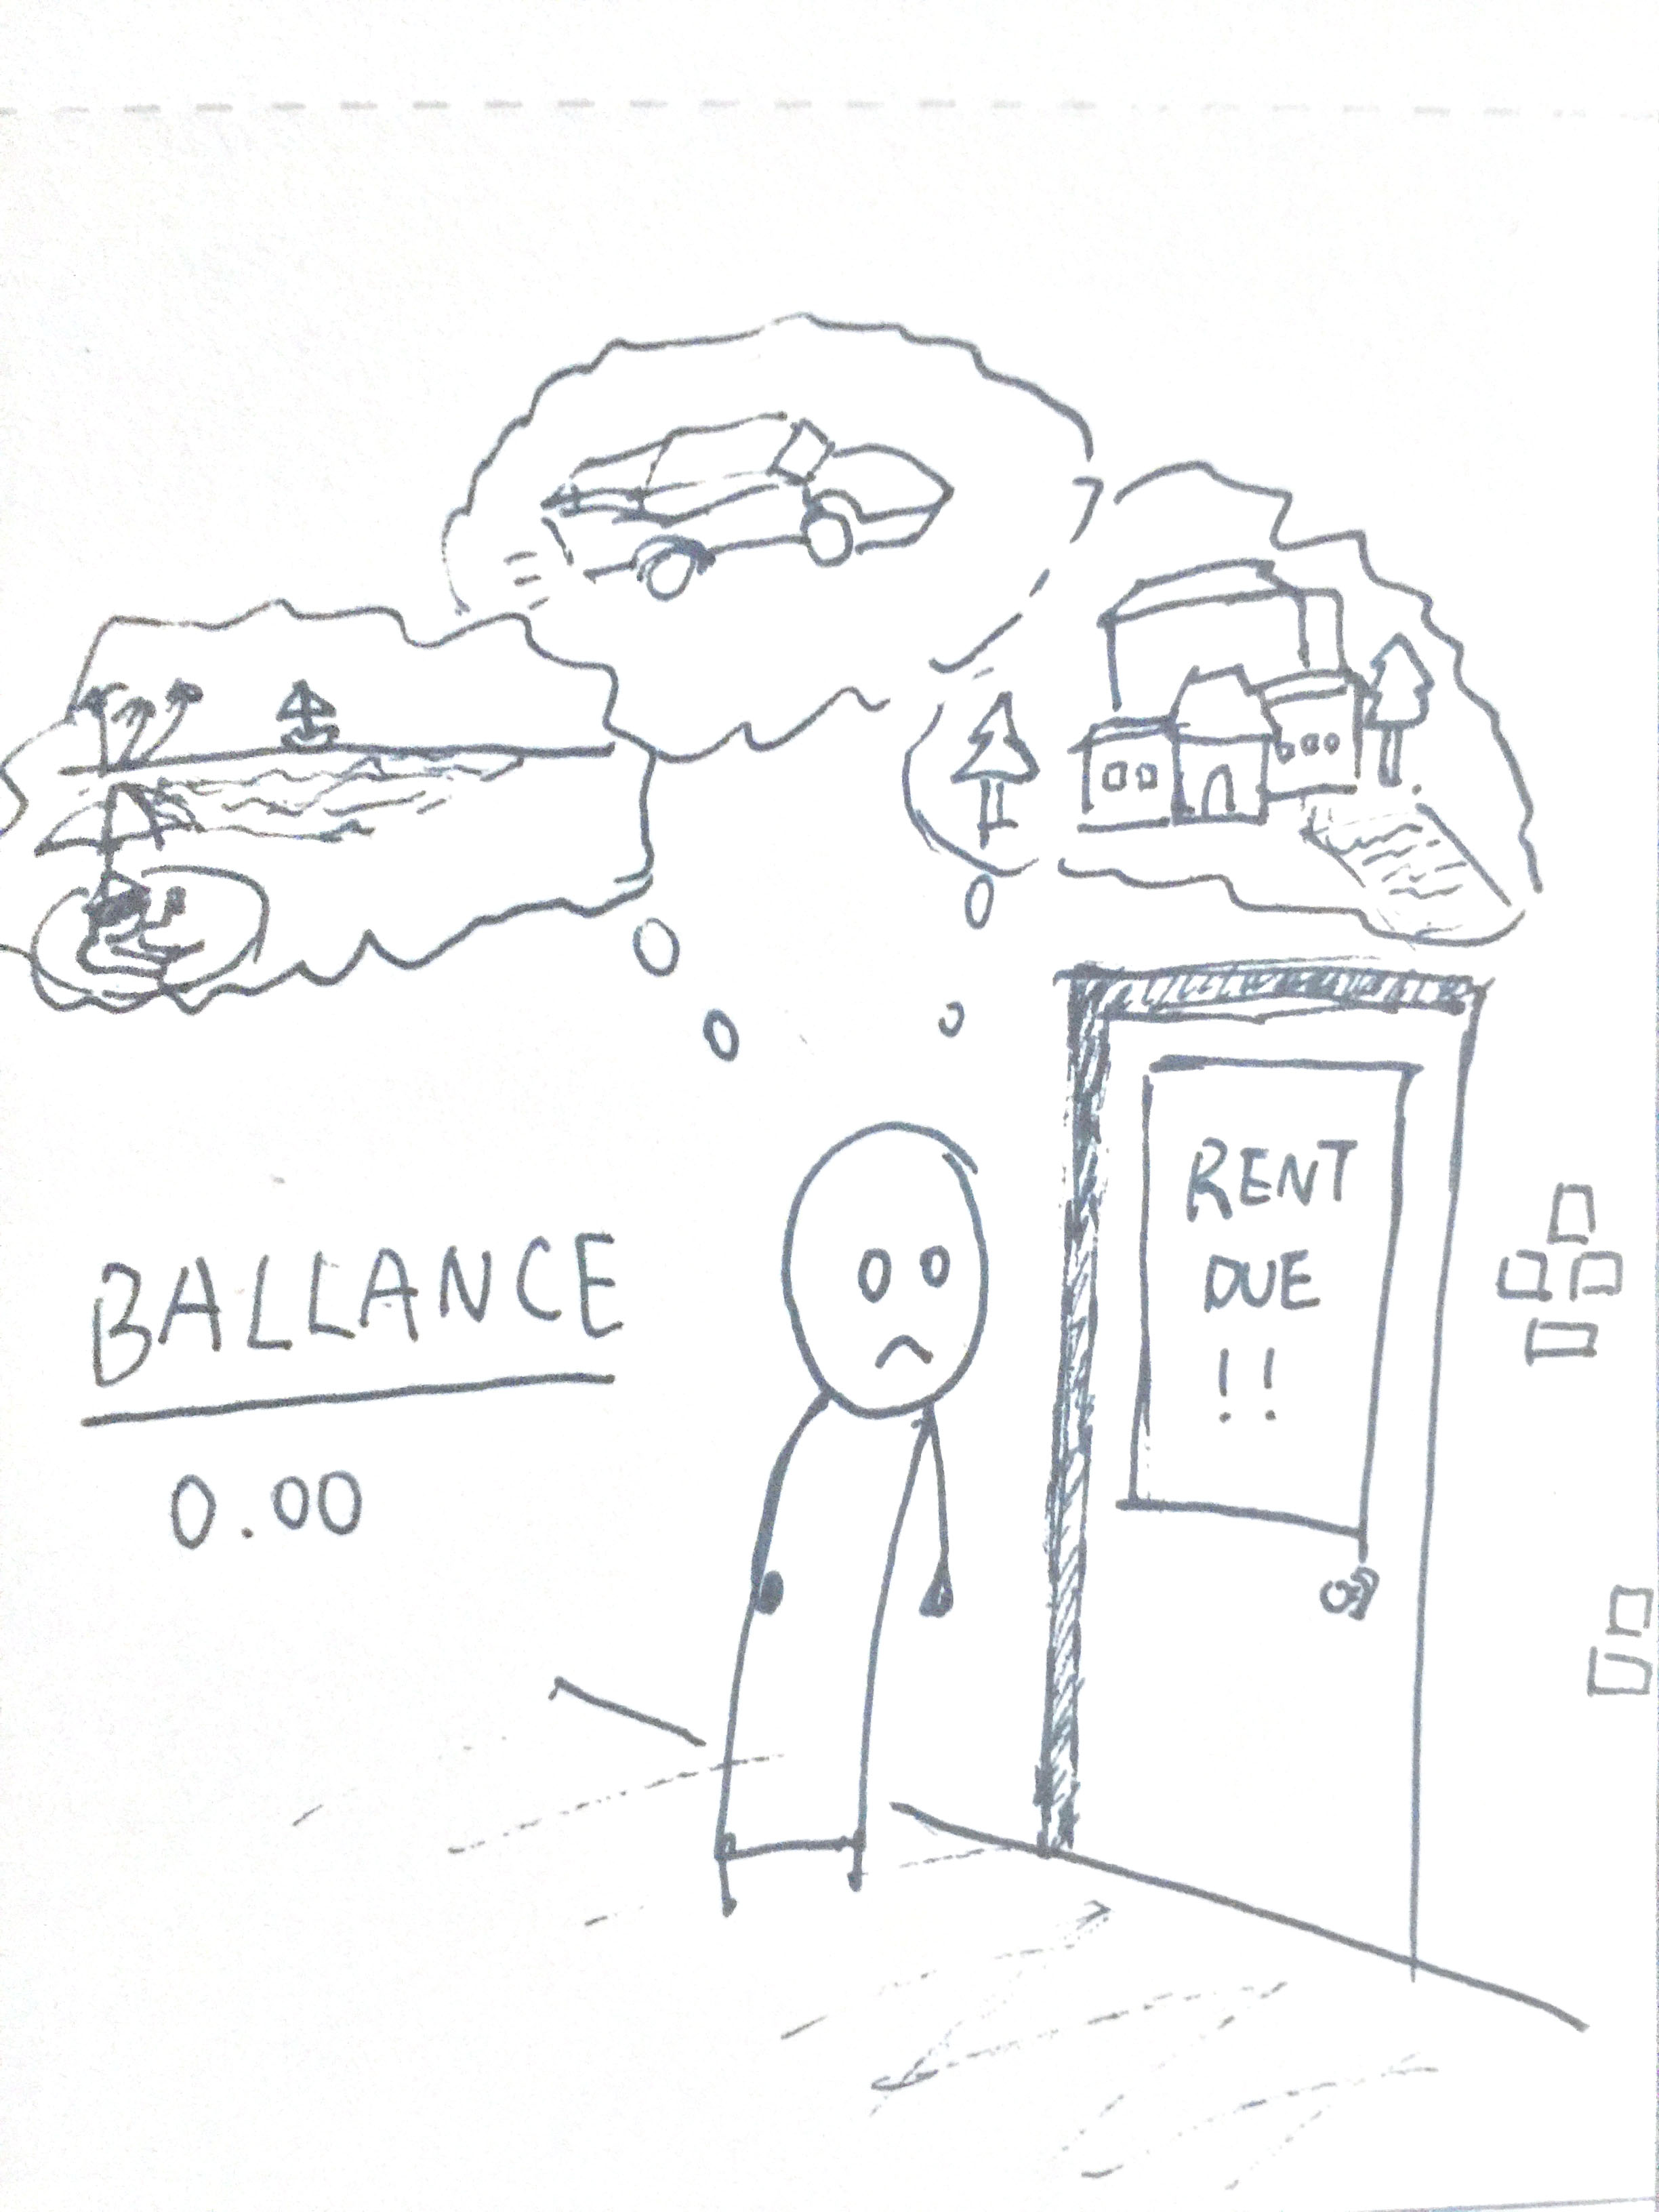 BALLANCE
0.00
RENT
DUE
!!